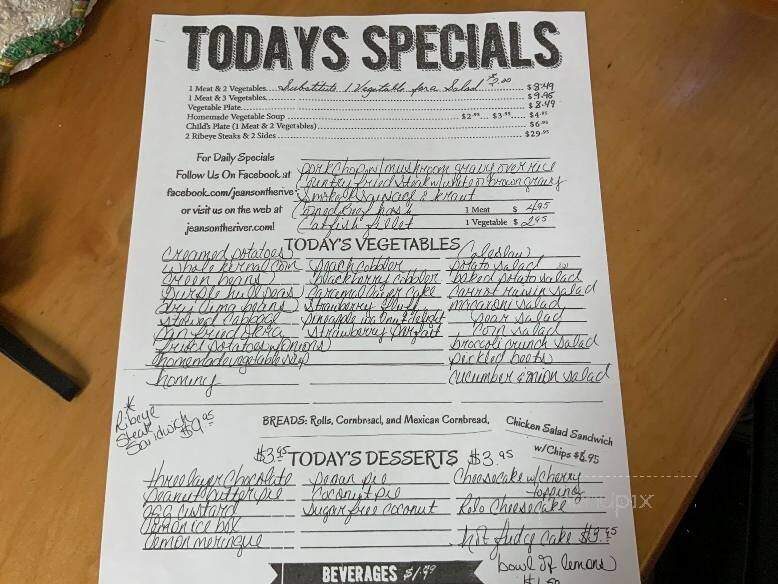 TODAYS SPECIALS
1 Meat & 2 Vegetables Substitute 1 Vegetable for a Salad $2.00 $8.49
1 Meat & 3 Vegetables $9.95
Vegetable Plate $8.49
Homemade Vegetable Soup $2 $3 $4
Child's Plate (1 Meat & 2 Vegetables) $6
2 Ribeye Steaks & 2 Sides $29
For Daily Specials
Follow Us On Facebook at
facebook.com/jeansontherive
or visit us on the web at
jeansontheriver.com!
porkchop w/mushroom gravy over rice
Country fried steak w/white or brown gravy
Smoked sausage & kraut
Corned beef hash 1 Meat $ 4.95
Catfish fillet 1 Vegetable $ 2.95
TODAY'S VEGETABLES
creamed potatoes Coleslaw
whole kernal corn peach cobbler potato salad
green beans blackberry cobbler baked potato salad
purple hull peas caramel layer cake carrot raisin salad
dry lima beans strawberry fluff macaroni salad
stewed cabbage pineapple walnut delight pear salad
pan fried okra strawberry parfait corn salad
fried potatoes w/onions broccoli crunch salad
homemade vegetable soup pickled beets
hominy cucumber & onion salad
* Ribeye
Steak
Sandwich
$9.95
BREADS: Rolls, Cornbread, and Mexican Cornbread,
Chicken Salad Sandwich
w/Chips $6.95
$3.95 TODAY'S DESSERTS $3.95
three layer chocolate pecan pie Cheesecake w/cherry
topping
peanut butter pie coconut pie Rolo Cheesecake
egg custard sugar free coconut
lemon ice box
lemon meringue hot fudge cake $3.95
BEVERAGES $1.99
bowl of lemons
$1.50